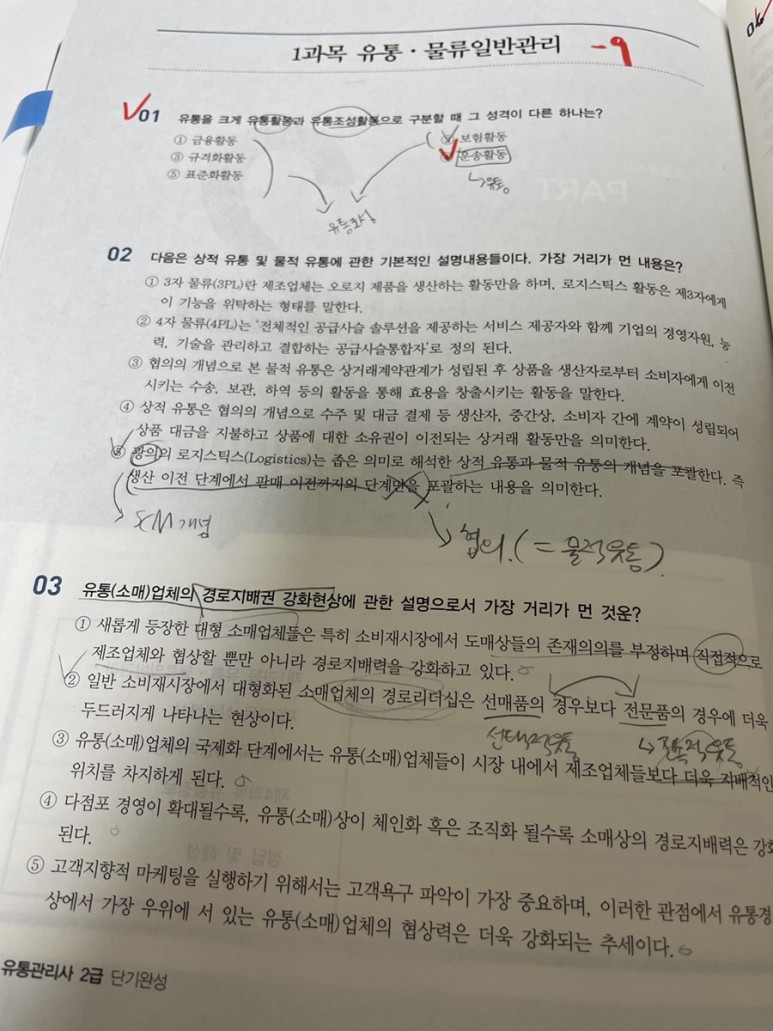 1과목 유통·물류일반관리 -9
01 유통을 크게 유통활동과 유통조성활동으로 구분할 때 그 성격이 다른 하나는?
① 금융활동 보험활동
③ 규격화활동 운송활동
⑤ 표준화활동
↳유통
유통조성
02 다음은 상적 유통 및 물적 유통에 관한 기본적인 설명내용들이다. 가장 거리가 먼 내용은?
① 3자 물류(3PL)란 제조업체는 오로지 제품을 생산하는 활동만을 하며, 로지스틱스 활동은 제3자에게
이 기능을 위탁하는 형태를 말한다.
② 4자 물류(4PL)는 '전체적인 공급사슬 솔루션을 제공하는 서비스 제공자와 함께 기업의 경영자원, 능
력, 기술을 관리하고 결합하는 공급사슬통합자'로 정의 된다.
③ 협의의 개념으로 본 물적 유통은 상거래계약관계가 성립된 후 상품을 생산자로부터 소비자에게 이전
시키는 수송, 보관, 하역 등의 활동을 통해 효용을 창출시키는 활동을 말한다.
④ 상적 유통은 협의의 개념으로 수주 및 대금 결제 등 생산자, 중간상, 소비자 간에 계약이 성립되어
상품 대금을 지불하고 상품에 대한 소유권이 이전되는 상거래 활동만을 의미한다.
⑤ 광의의 로지스틱스(Logistics)는 좁은 의미로 해석한 상적 유통과 물적 유통의 개념을 포괄한다. 즉
생산 이전 단계에서 판매 이전까지의 단계만을 포괄하는 내용을 의미한다.
SCM개념
협의.(=물적유통).
03 유통(소매)업체의 경로지배권 강화현상에 관한 설명으로서 가장 거리가 먼 것은?
① 새롭게 등장한 대형 소매업체들은 특히 소비재시장에서 도매상들의 존재의의를 부정하며 직접적으로
제조업체와 협상할 뿐만 아니라 경로지배력을 강화하고 있다.
② 일반 소비재시장에서 대형화된 소매업체의 경로리더십은 선매품의 경우보다 전문품의 경우에 더욱
두드러지게 나타나는 현상이다.
선택적유통 ↳전속적유통
③ 유통(소매)업체의 국제화 단계에서는 유통(소매)업체들이 시장 내에서 제조업체들보다 더욱 지배적인
위치를 차지하게 된다.
④ 다점포 경영이 확대될수록, 유통(소매)상이 체인화 혹은 조직화 될수록 소매상의 경로지배력은 강화
된다.
⑤ 고객지향적 마케팅을 실행하기 위해서는 고객욕구 파악이 가장 중요하며, 이러한 관점에서 유통경
상에서 가장 우위에 서 있는 유통(소매)업체의 협상력은 더욱 강화되는 추세이다.
유통관리사 2급 단기완성